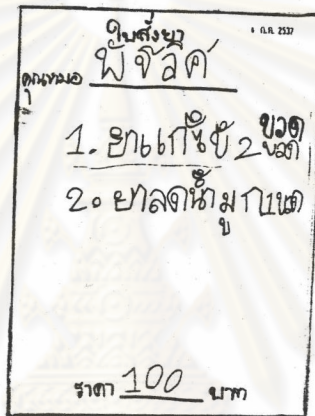 ใบสั่งยา
ก.ค. 2537
คุณหมอ พัชวิศ
1. ยาแก้ไข้ 2 ขวด
ขวด
2. ยาลดน้ำมูก
ราคา 100 บาท